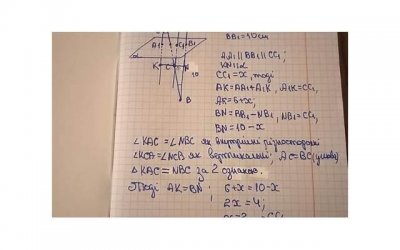 BB₁ = 10 см
A₁ C₁ B₁
α K C N
10
B
AA₁ || BB₁ || CC₁;
KN || α
CC₁ = x, тоді
AK = AA₁ + A₁K, A₁K = CC₁
AK = 6 + x;
BN = BB₁ - NB₁, NB₁ = CC₁
BN = 10 - x
∠KAC = ∠NBC як внутрішні різносторонні
∠KCA = ∠NCB як вертикальні; AC = BC (умова)
△ KAC = NBC за 2 ознакою.
Тоді AK = BN; 6 + x = 10 - x
2x = 4;